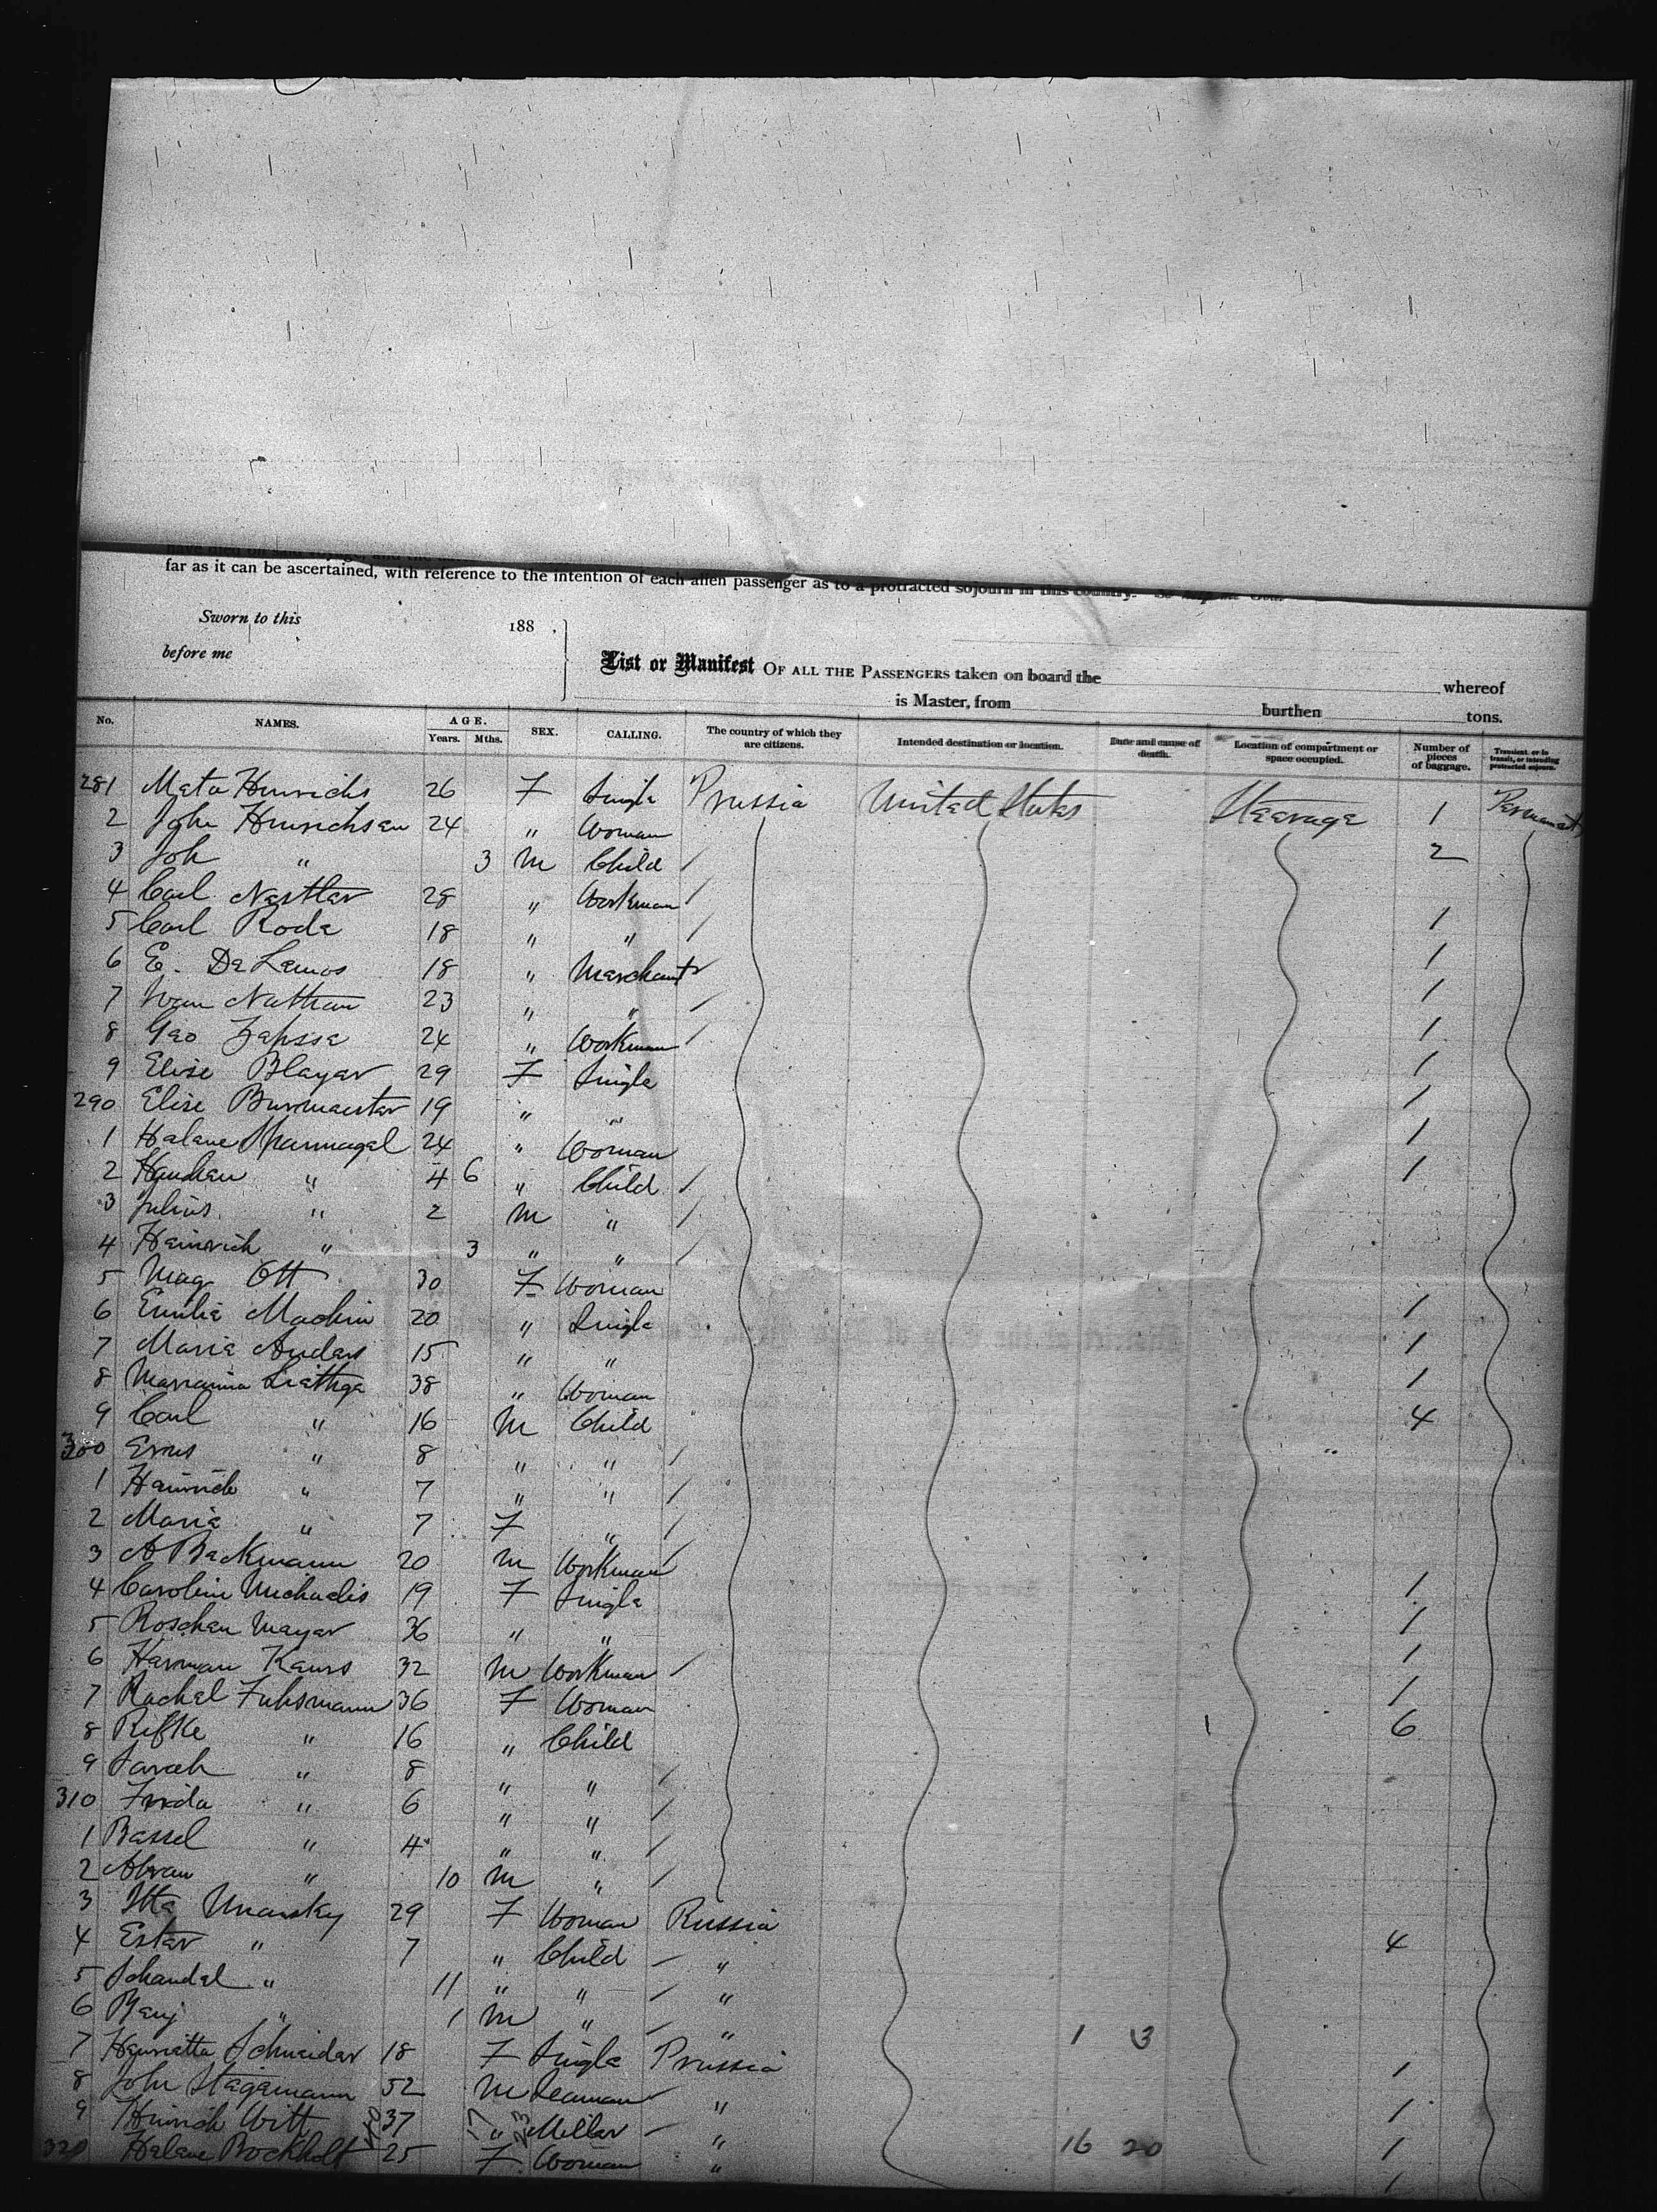 far as it can be ascertained, with reference to the intention of each alien passenger as to a protracted sojourn in this country.
Sworn to this 188 .
before me
List or Manifest OF ALL THE PASSENGERS taken on board the whereof
is Master, from burthen tons.
No. NAMES. AGE. Years. Mths. SEX. CALLING. The country of which they are citizens. Intended destination or location. Date and cause of death. Location of compartment or space occupied. Number of pieces of baggage. Transient, or in transit, or intending protracted sojourn.
281 Meta Hinrichs 26 F Single Prussia United States Steerage 1 Permanent
2 John Hinrichsen 24 " Woman 2
3 Joh " 3 M Child /
4 Carl Nestler 28 " Workman / 1
5 Carl Rode 18 " " / 1
6 E. De Lemos 18 " Merchant 1
7 Ivan Nathan 23 " " / 1
8 Geo 24 " Workman / 1
9 Elise Bleyer 29 F Single 1
290 Elise Burmeister 19 " " 1
1 Helene 24 " Woman 1
2 " 4 6 " Child /
3 Julius " 2 M " /
4 Heinrich " 3 " " /
5 Mag Ott 30 F Woman 1
6 Emilie 20 " Single 1
7 Marie Anders 15 " " 1
8 Liethge 38 " Woman 4
9 Carl " 16 M Child
300 " 8 " " /
1 Heinrich " 7 " " /
2 Marie " 7 F " /
3 A Beckmann 20 M Workman / 1
4 Caroline Michaelis 19 F Single 1
5 Roschen Meyer 36 " " 1
6 Herman 32 M Workman / 1
7 Rachel Fuhsmann 36 F Woman 6
8 Rifke " 16 " Child
9 Sarah " 8 " " /
310 Frida " 6 " " /
1 Bessel " 4 " " /
2 Abram " 10 M " /
3 Itta 29 F Woman Russia 4
4 Ester " 7 " Child / "
5 Schendel " 11 " " / "
6 Benj " 1 M " / " 1 3
7 Henrietta Schneider 18 F Single Prussia 1
8 John Stegemann 52 M Seaman / " 1
9 Hinrich Witt 37 " Miller / " 16 20 1
320 Helene Bockholt 25 F Woman " 1